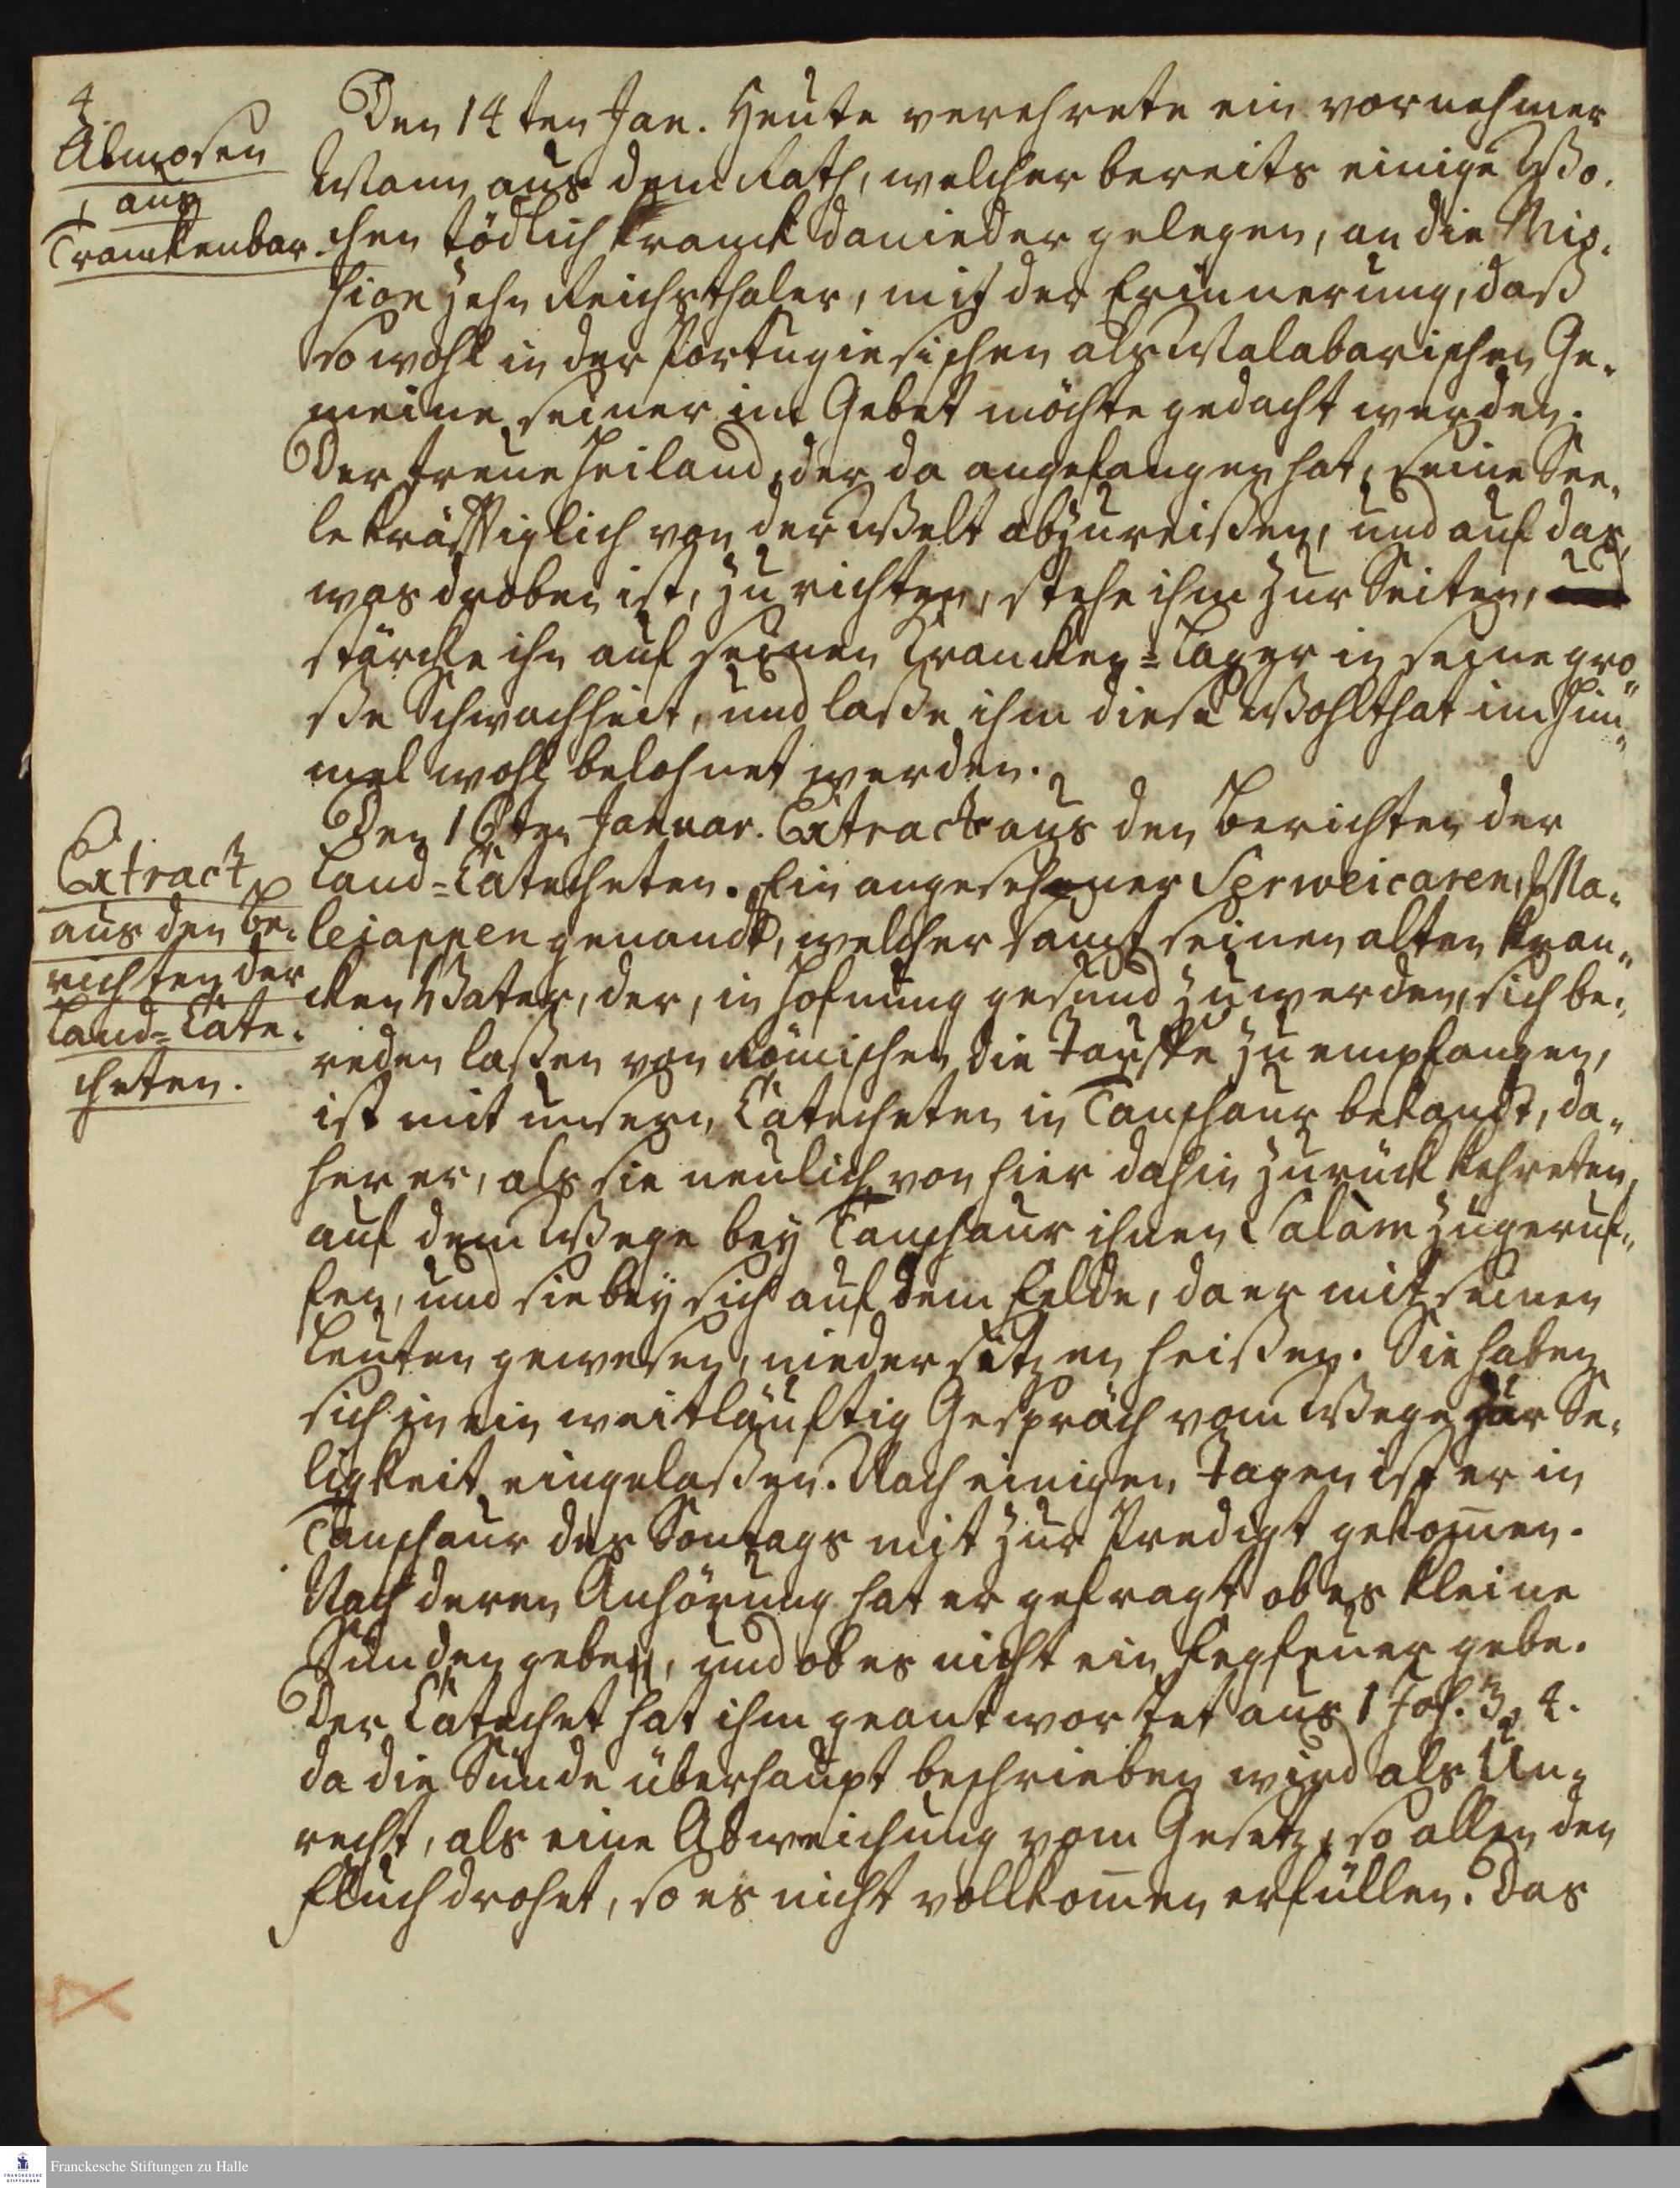 4.
Almosen
aus
Tranckenbar.
Den 14ten Jan. Heute verehrete ein vornehmer
Mann aus dem Rath, welcher bereits einige Wo-
chen tödlich kranck danieder gelegen, an die Mis-
sion zehn Reichsthaler, mit der Erinnerung, daß
so wohl in der Portugiesischen als Malabarischen Ge-
meine seiner im Gebet möchte gedacht werden.
Der treue Heiland, der da angefangen hat, seine See-
le kräfftiglich von der Welt abzureißen, und auf das,
was droben ist, zu richten, stehe ihm zur Seiten, und
stärcke ihn auf seinen Krancken-Lager in seine gro-
ße Schwachheit, und laße ihm diese Wohlthat im Him-
mel wohl belohnet werden.
Extract
aus den Be-
richten der
Land-Cate-
cheten.
Den 16ten Januar. Extract aus den Berichten der
Land-Catecheten. Ein angesehener Serweicaren, Ma-
leiappen genandt, welcher samt seinen alten kran-
cken Vater, der, in Hofnung gesund zu werden, sich be-
reden laßen von Römischen die Tauffe zu empfangen,
ist mit unsern Catecheten in Tanschaur bekandt, da-
her er, als sie neulich von hier dahin zurück kehreten,
auf dem Wege bey Tanschaur ihnen Salàm zugeruf-
fen, und sie bey sich auf dem Felde, da er mit seinen
Leuten gewesen, nieder sitzen heißen. Sie haben
sich in ein weitläuftig Gespräch vom Wege zur Se-
ligkeit eingelaßen. Nach einigen Tagen ist er in
Tanschaur des Sontags mit zur Predigt gekom̅en.
Nach deren Anhörung hat er gefragt ob es kleine
Sünden geben, und ob es nicht ein Fegfeuer gebe.
Der Catechet hat ihm geantwortet aus 1 Joh. 3, 4.
da die Sünde überhaupt beschrieben wird als Un-
recht, als eine Abweichung vom Gesetz, so allen den
Fluch drohet, so es nicht vollkom̅en erfüllen. Das
Franckesche Stiftungen zu Halle